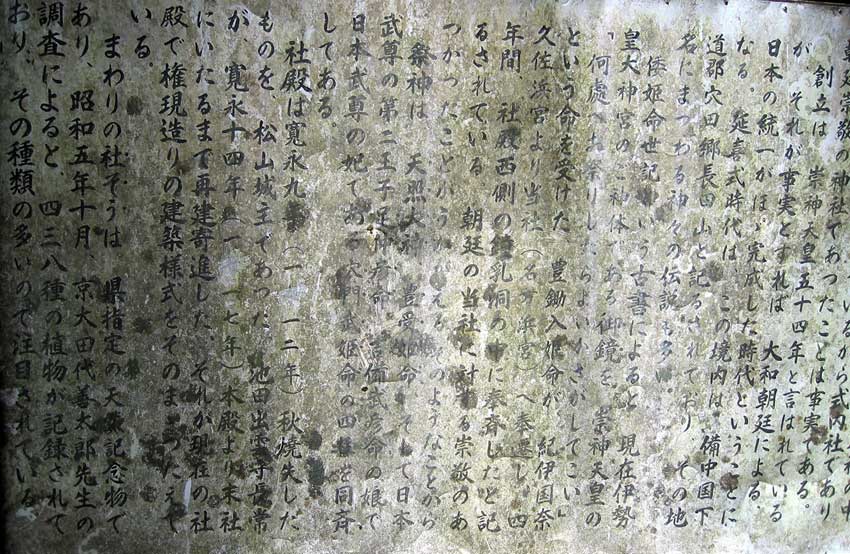 いるから式内社であり
朝廷崇敬の神社であつたことは事実である。
創立は、崇神天皇五十四年と言はれている
が、それが事実とすれば、大和朝廷による、
日本の統一がほゞ完成した時代ということに
なる。延喜式時代は、この境内は、備中国下
道郡穴田郷長田山と記るされており、その地
名にまつわる神々の伝説も多い。
倭姫命世記という古書によると、現在伊勢
皇大神宮のご神体である御鏡を、崇神天皇の
「何處へお祭りしたらよいかさがしてこい」
という命を受けた、豊鋤入姫命が、紀伊国奈
久佐浜宮より当社(名方浜宮)へ奉遷し、四
年間、社殿西側の鍾乳洞の中に奉斉したと記
るされている。朝廷の当社に対する崇敬のあ
つかつたことがうかがえる。そのようなことから
祭神は、天照大神、豊受姫命、そして日本
武尊の第二王子足仲彦命、吉備武彦命の娘で
日本武尊の妃であつ穴門武姫命の四柱を同斉
してある。
社殿は寛永九年(一 一二年)秋焼失した
ものを、松山城主であつた、池田出雲守長常
が、寛永十四年(一 一七年)本殿より末社
にいたるまで再建寄進した、それが現在の社
殿で権現造りの建築様式をそのまゝつたえて
いる。
まわりの社そうは、県指定の天然記念物で
あり、昭和五年十月、京大田代善太郎先生の
調査によると、四三八種の植物が記録されて
おり、その種類の多いので注目されている。